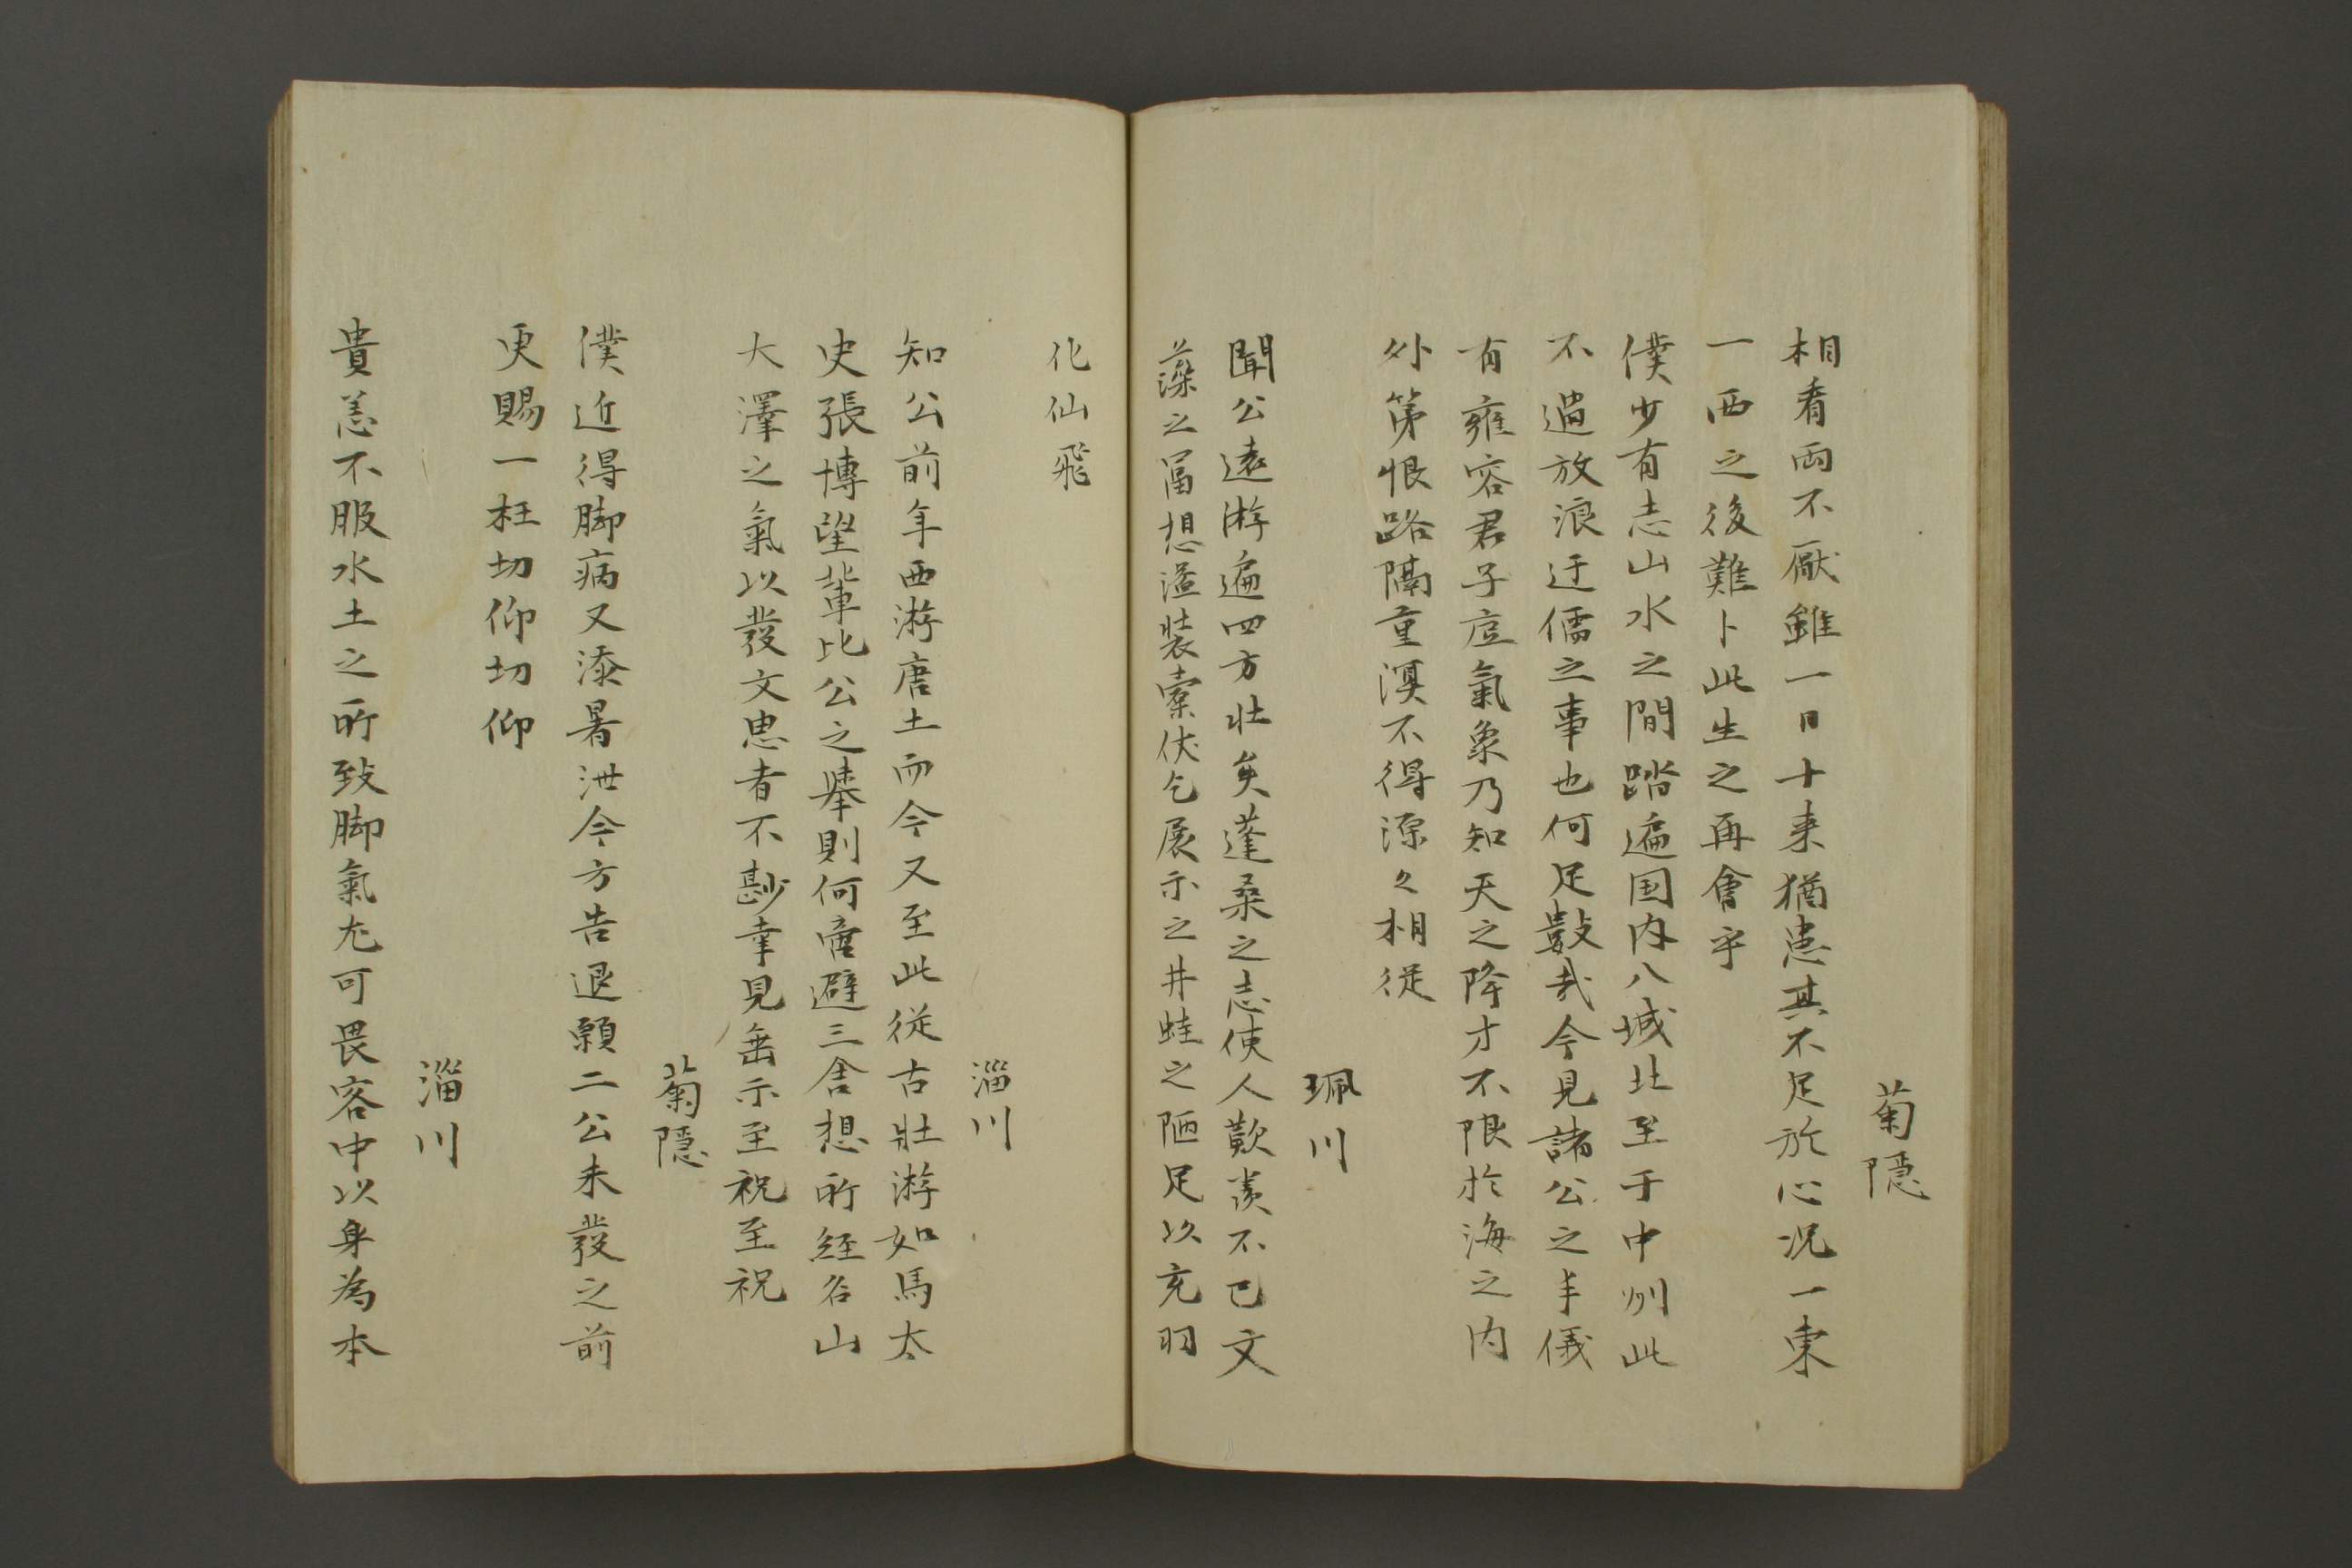 菊隱
相看兩不厭雖一日十来猶患其不足於心况一東
一西之後難卜此生之再會乎
僕少有志山水之間踏遍国内八域北至于中州此
不過放浪迂儒之事也何足數哉今見諸公之丰儀
有雍容君子底氣象乃知天之降才不限於海之内
外第恨路隔重溟不得源々相従
珮川
聞公遠游遍四方壮矣蓬桑之志使人歎羨不已文
藻之冨想溢装槖伏乞展示之井蛙之陋足以充羽
化仙飛
淄川
知公前年西游唐土而今又至此従古壮游如馬太
史張博望輩比公之舉則何啻避三舎想所經名山
大澤之氣以發文思者不尠幸見垂示至祝至祝
菊隱
僕近得脚病又添暑泄今方告退願二公未發之前
更賜一枉切仰切仰
淄川
貴恙不服水土之所致脚氣尤可畏客中以身為本